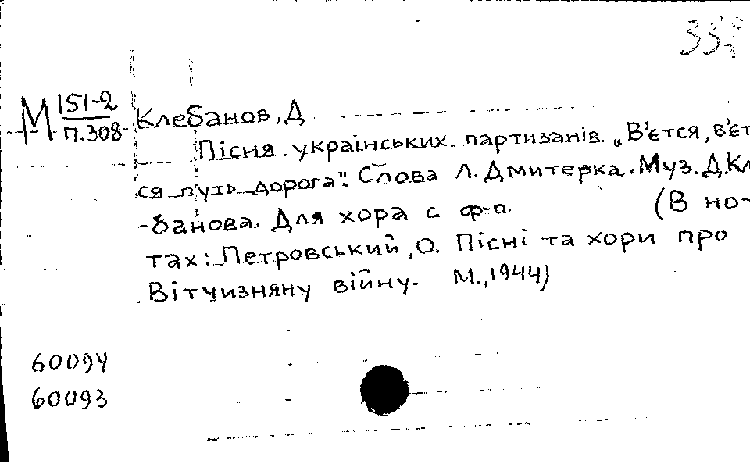 33
М 151-2
П.308
Клебанов, Д
Пісня українських партизанів. „В'ється, в'єт
ся путь дорога". Слова Л. Дмитерка. Муз. Д. Кл
-банова. Для хора с ф-п. (В но-
тах: Петровський, О. Пісні та хори про
Вітчизняну війну. М., 1944)
60094
60093